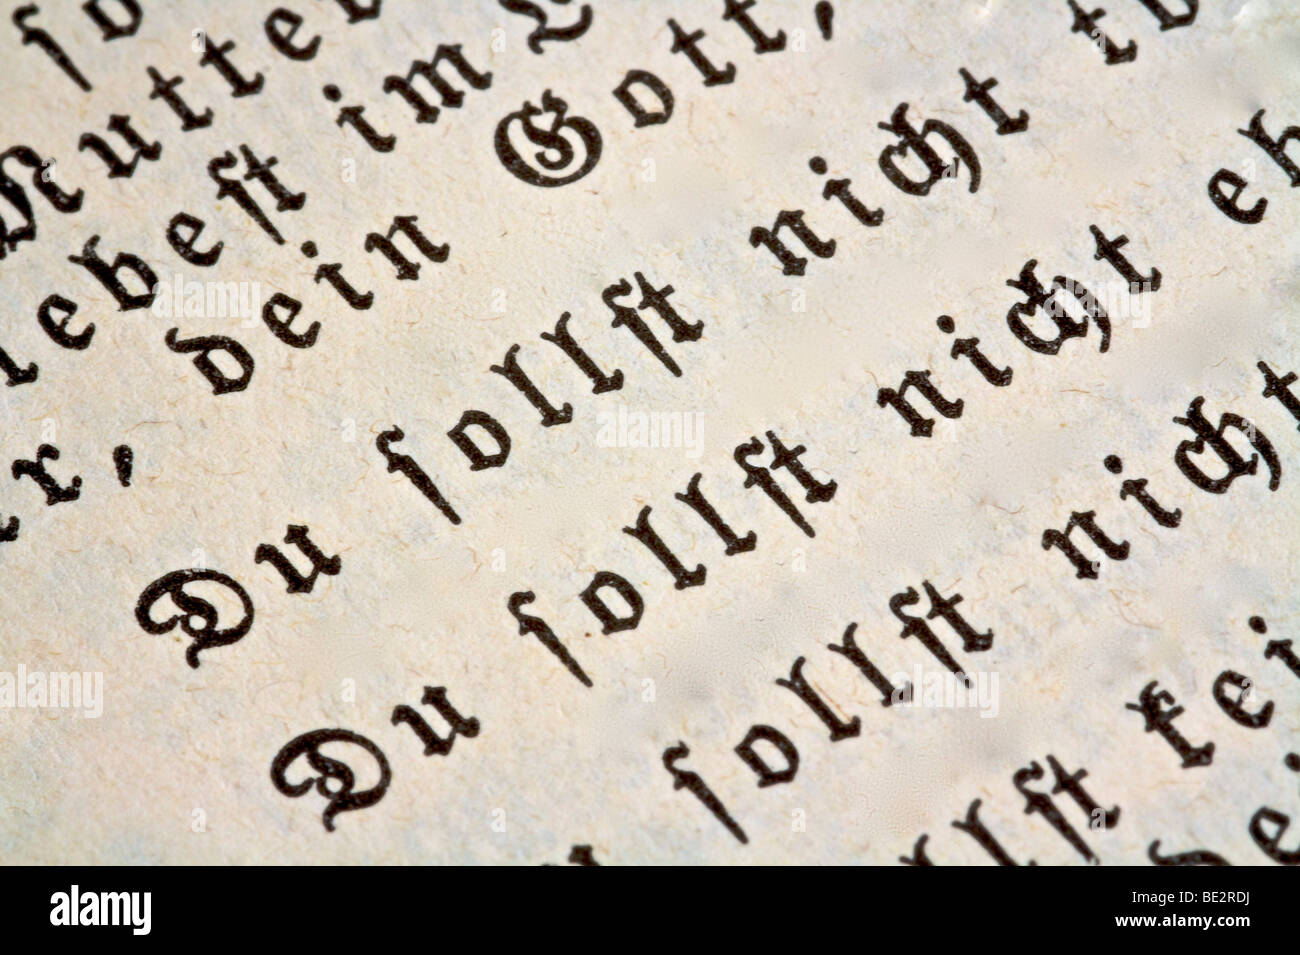 ſo
Mutter
lebeſt im
r, dein Gott,
Du ſollſt nicht t
Du ſollſt nicht eh
ſollſt nicht
llſt kei
de
alamy
Image ID: BE2RDJ
www.alamy.com